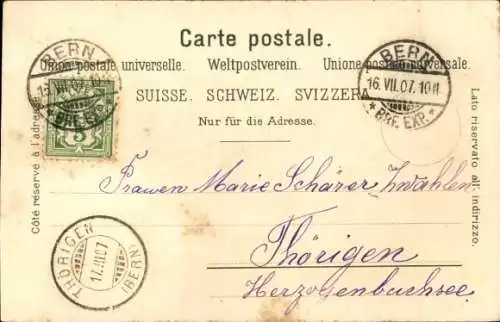 Carte postale.
Union postale universelle. Weltpostverein. Unione postale universale.
SUISSE. SCHWEIZ. SVIZZERA.
Nur für die Adresse.
Côté réservé à l'adresse.
Lato riservato all' indirizzo.
BERN
16.VII.07.10
BRF. EXP.
5
BERN
16.VII.07.10
* BRF. EXP. *
Frauen Marie Schärer Zwahlen
Thörigen
Herzogenbuchsee.
THÖRIGEN
17.VII.07
(BERN)